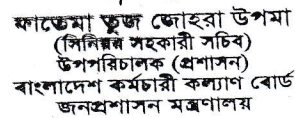 ফাতেমা তুজ জোহরা উপমা
(সিনিয়র সহকারী সচিব)
উপপরিচালক (প্রশাসন)
বাংলাদেশ কর্মচারী কল্যাণ বোর্ড
জনপ্রশাসন মন্ত্রণালয়